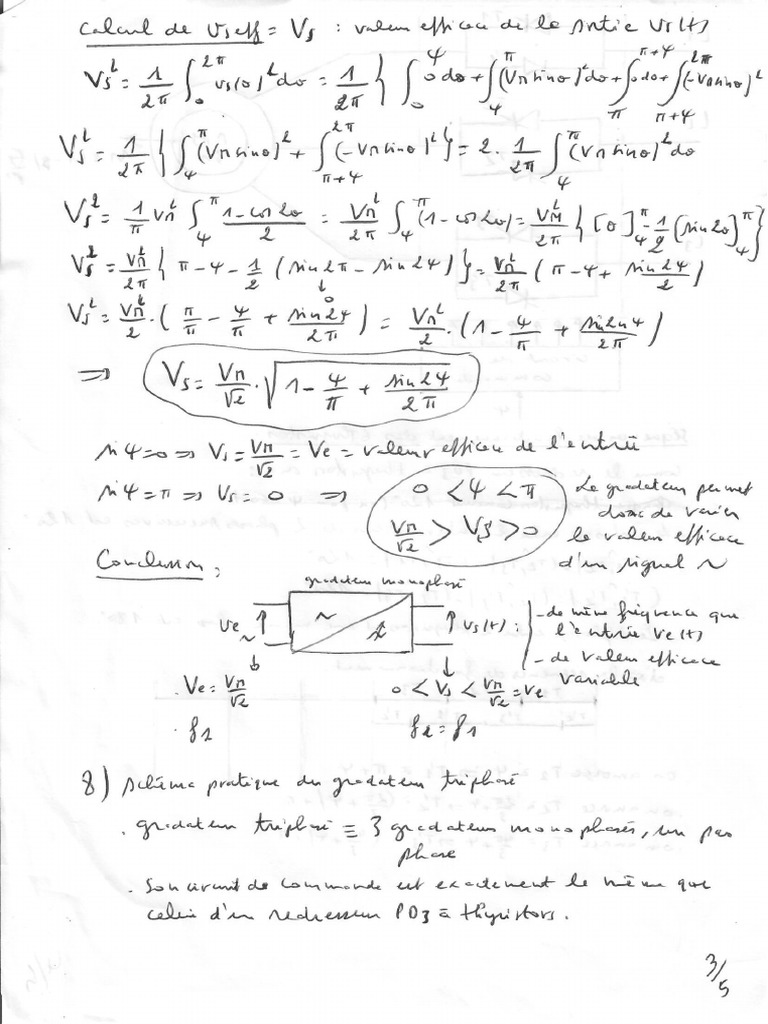 Calcul de Vseff = Vs : valeur efficace de la sortie vs(t)
Vs² = 1/2π ∫₀^2π vs(θ)² dθ = 1/2π { ∫₀^ψ 0 dθ + ∫_ψ^π (VM sinθ)² dθ + ∫_π^π+ψ 0 dθ + ∫_π+ψ^2π (-VM sinθ)²
Vs² = 1/2π { ∫_ψ^π (VM sinθ)² + ∫_π+ψ^2π (-VM sinθ)² } = 2 . 1/2π ∫_ψ^π (VM sinθ)² dθ
Vs² = 1/π VM² ∫_ψ^π (1 - cos 2θ)/2 = VM²/2π ∫_ψ^π (1 - cos 2θ) = VM²/2π { [θ]_ψ^π - 1/2 (sin 2θ)_ψ^π }
Vs² = VM²/2π { π - ψ - 1/2 (sin 2π - sin 2ψ) } = VM²/2π (π - ψ + sin 2ψ/2)
↓ 0
Vs² = VM²/2 . (π/π - ψ/π + sin 2ψ/2π) = VM²/2 . (1 - ψ/π + sin 2ψ/2π)
⟹ Vs = VM/√2 . √(1 - ψ/π + sin 2ψ/2π)
si ψ=0 ⟹ Vs = VM/√2 = Ve = valeur efficace de l'entrée
si ψ=π ⟹ Vs = 0 ⟹ 0 < ψ < π
VM/√2 > Vs > 0
Le gradateur permet
donc de varier
la valeur efficace
d'un signal ~
Conclusion :
gradateur monophasé
ve ~ ~ vs(t) :
- de même fréquence que
l'entrée ve(t)
- de valeur efficace
variable
. Ve = VM/√2 0 < Vs < VM/√2 = Ve
. f1 f2 = f1
8) Schéma pratique du gradateur triphasé
. gradateur triphasé ≡ 3 gradateurs monophasés, un par
phase
. Son circuit de commande est exactement le même que
celui d'un redresseur PD3 à thyristors.
3/5